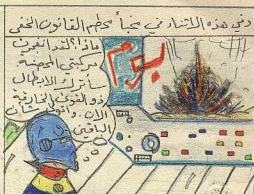 وفي هذه الاثناء في مخبأ محطم القانون الخفي
ماذا؟ لقد انفجرت
مركبتي المحصنة
سأترك الابطال
ذوو القوى الخارقة
الان. وانهي شأن
الباقين
بوم